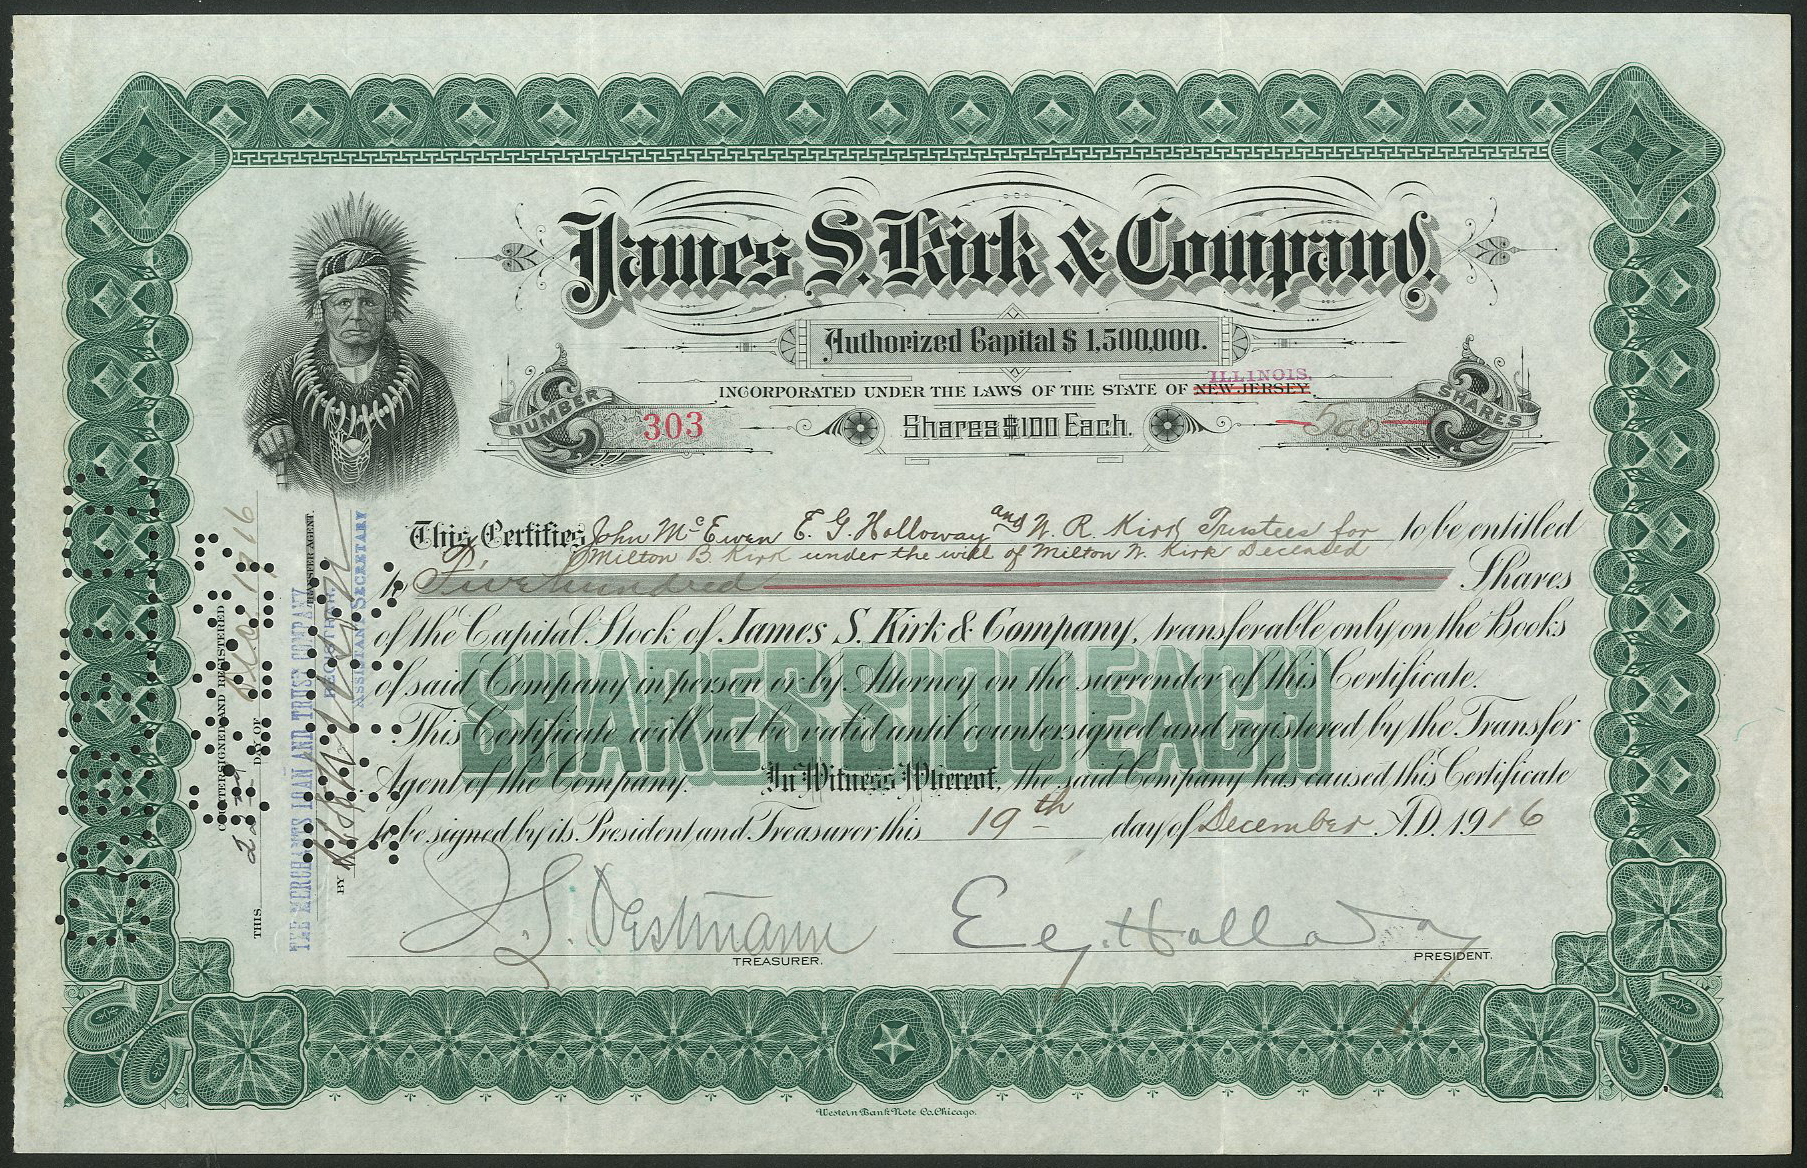 James S. Kirk & Company.
Authorized Capital $ 1,500,000.
ILLINOIS,
INCORPORATED UNDER THE LAWS OF THE STATE OF NEW JERSEY.
NUMBER 303
Shares $100 Each.
500 SHARES
This Certifies John Mc Ewen E. G. Holloway and W. R. Kirk Trustees for to be entitled
Milton B. Kirk under the will of Milton W. Kirk Deceased
to Five hundred Shares
of the Capital Stock of James S. Kirk & Company, transferable only on the Books
of said Company in person or by Attorney on the surrender of this Certificate.
This Certificate will not be valid until countersigned and registered by the Transfer
Agent of the Company. In Witness Whereof, the said Company has caused this Certificate
to be signed by its President and Treasurer this 19th day of December A.D. 1916
SHARES $100 EACH
TREASURER.
E. G. Holloway
PRESIDENT.
COUNTERSIGNED AND REGISTERED
THIS 22nd DAY OF Dec. 1916
THE MERCHANTS LOAN AND TRUST COMPANY
TRANSFER AGENT.
REGISTRAR.
BY
ASSISTANT SECRETARY
Western Bank Note Co. Chicago.